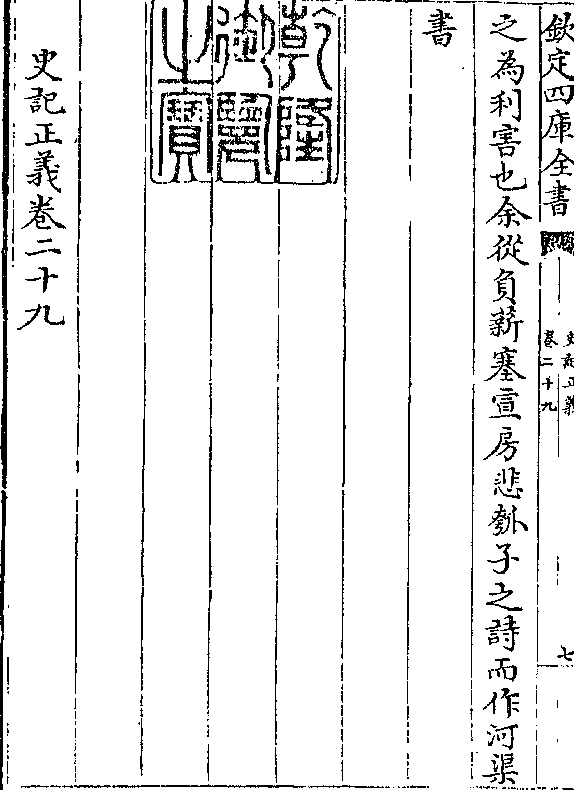 欽定四庫全書
史記正義
卷二十九
七
之為利害也余從負薪塞宣房悲瓠子之詩而作河渠
書
乾隆御覽之寶
史記正義卷二十九